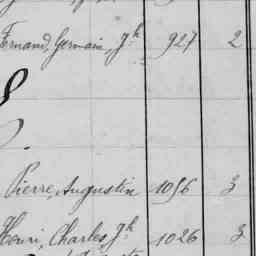 Fernand, Germain, Jh 927 2
Pierre, Augustin 1056 3
Henri, Charles, Jh 1026 3